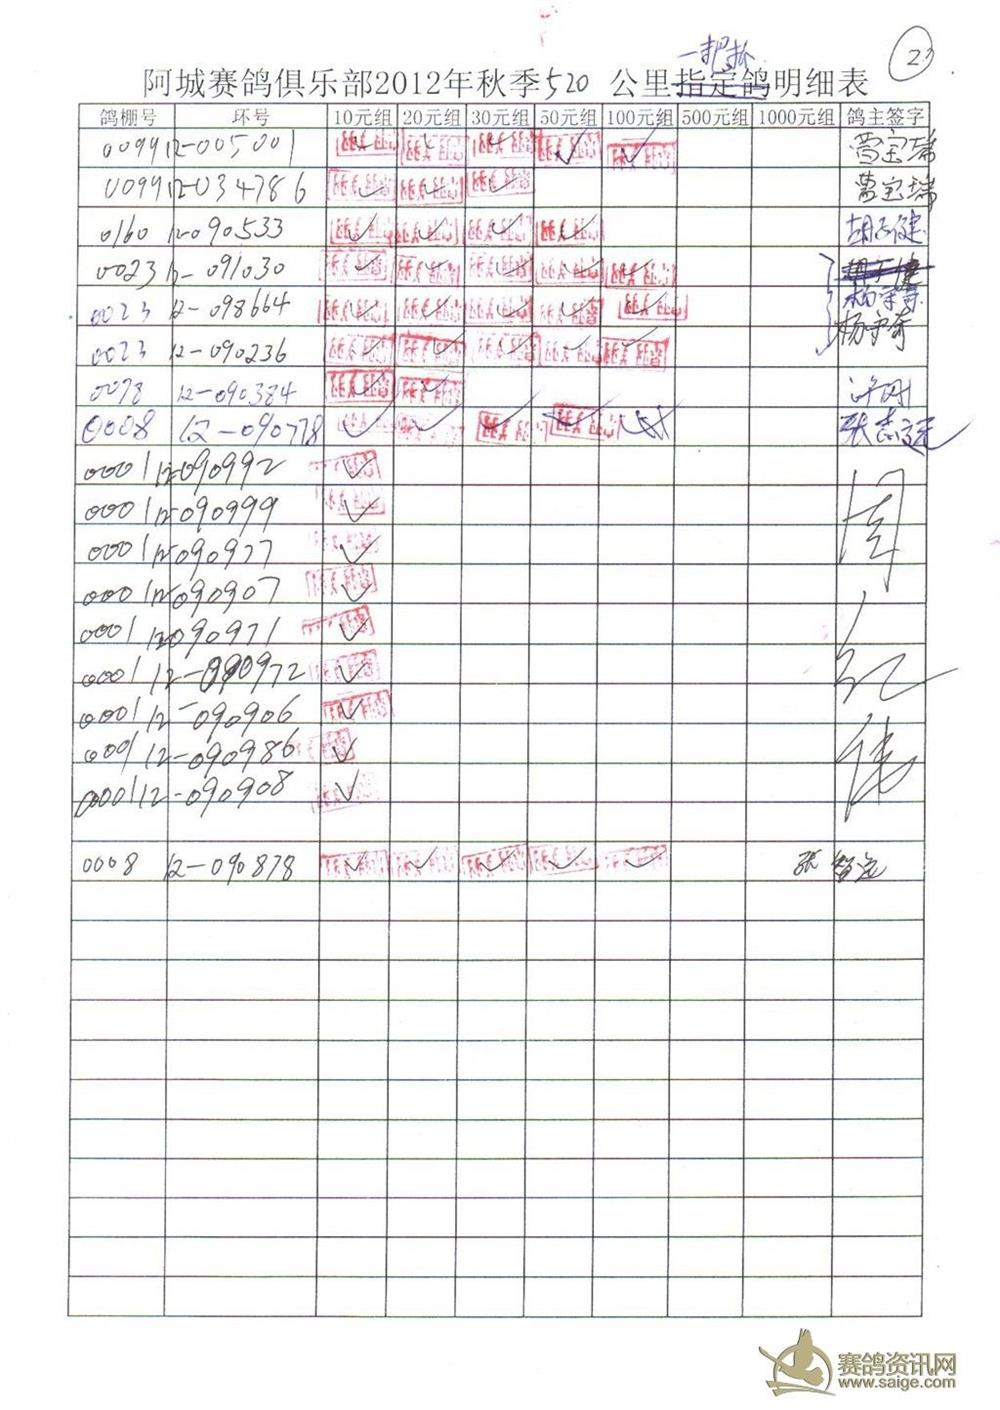 23
一把抓
阿城赛鸽俱乐部2012年秋季520 公里指定鸽明细表
鸽棚号 环号 10元组 20元组 30元组 50元组 100元组 500元组 1000元组 鸽主签字
0099 12-005001 ✓ ✓ ✓ ✓ ✓ 曹宝瑞
0099 12-034786 ✓ ✓ ✓ 曹宝瑞
0160 12-090533 ✓ ✓ ✓ ✓
0023 12-091030 ✓ ✓ ✓ ✓ ✓
0023 12-098664 ✓ ✓ ✓ ✓ ✓
0023 12-090236 ✓ ✓ ✓ ✓ ✓
0078 12-090384 ✓ ✓ 许刚
0008 12-090778 ✓ ✓ ✓ ✓ 张志远
0001 12090992 ✓
0001 12-090999 ✓
0001 12-090977 ✓
0001 12-090907 ✓
0001 12090971 ✓
0001 12-090972 ✓
0001 12-090906 ✓
0001 12-090986 ✓
0001 12-090908 ✓
0008 12-090878 ✓ ✓ ✓ ✓ ✓
赛鸽资讯网
www.saige.com